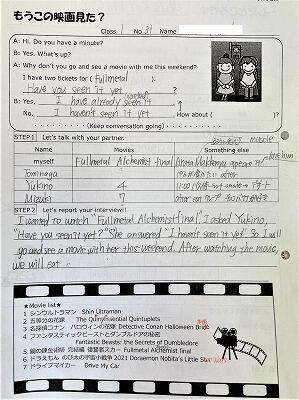 もうこの映画見た？
Class 1 No 31 Name
A: Hi. Do you have a minute?
B: Yes. What's up?
A: Why don't you go and see a movie with me this weekend?
I have two tickets for (Fullmetal).
Have you seen it yet
B: Yes, I have already seen it
No, I haven't seen it yet. How about ( )?
(Keep conversation going)
STEP1 Let's talk with your partner.
Name Movies Something else
myself Fullmetal Alchemist final Arata Mackenyu appears it
muscle
love him
Tominaga
Yukino 4
Mizuki 7
STEP 2 Let's report your interview!!
I wanted to watch "Fullmetal Alchemist final" I asked Yukino,
"Have you seen it yet?" She answered "I haven't seen it yet" So I will
go and see a movie with her this weekend. After watching the movie,
we will eat
★Movie list★
1 シンウルトラマン Shin Ultraman
2 五等分の花嫁 The Quintessential Quintuplets
3 名探偵コナン ハロウィンの花嫁 Detective Conan Halloween Bride
4 ファンタスティックビーストとダンブルドアの秘密
Fantastic Beasts: the Secrets of Dumbledore
5 鋼の錬金術師 完結編 復讐者スカー Fullmetal Alchemist final
6 ドラえもん のび太の宇宙小戦争 2021 Doraemon Nobita's Little Star Wars
7 ドライブマイカー Drive My Car